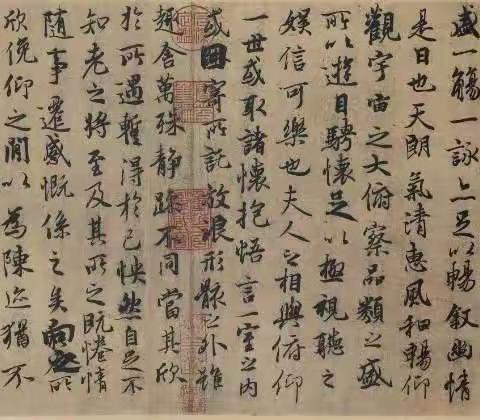 盛一觴一詠亦足以暢叙幽情
是日也天朗氣清惠風和暢仰
觀宇宙之大俯察品類之盛
所以遊目騁懷足以極視聽之
娛信可樂也夫人之相與俯仰
一世或取諸懷抱悟言一室之內
或因寄所託放浪形骸之外雖
趣舍萬殊靜躁不同當其欣
於所遇暫得於己怏然自足不
知老之將至及其所之既惓情
隨事遷感慨係之矣向之所
欣俛仰之閒以為陳迹猶不